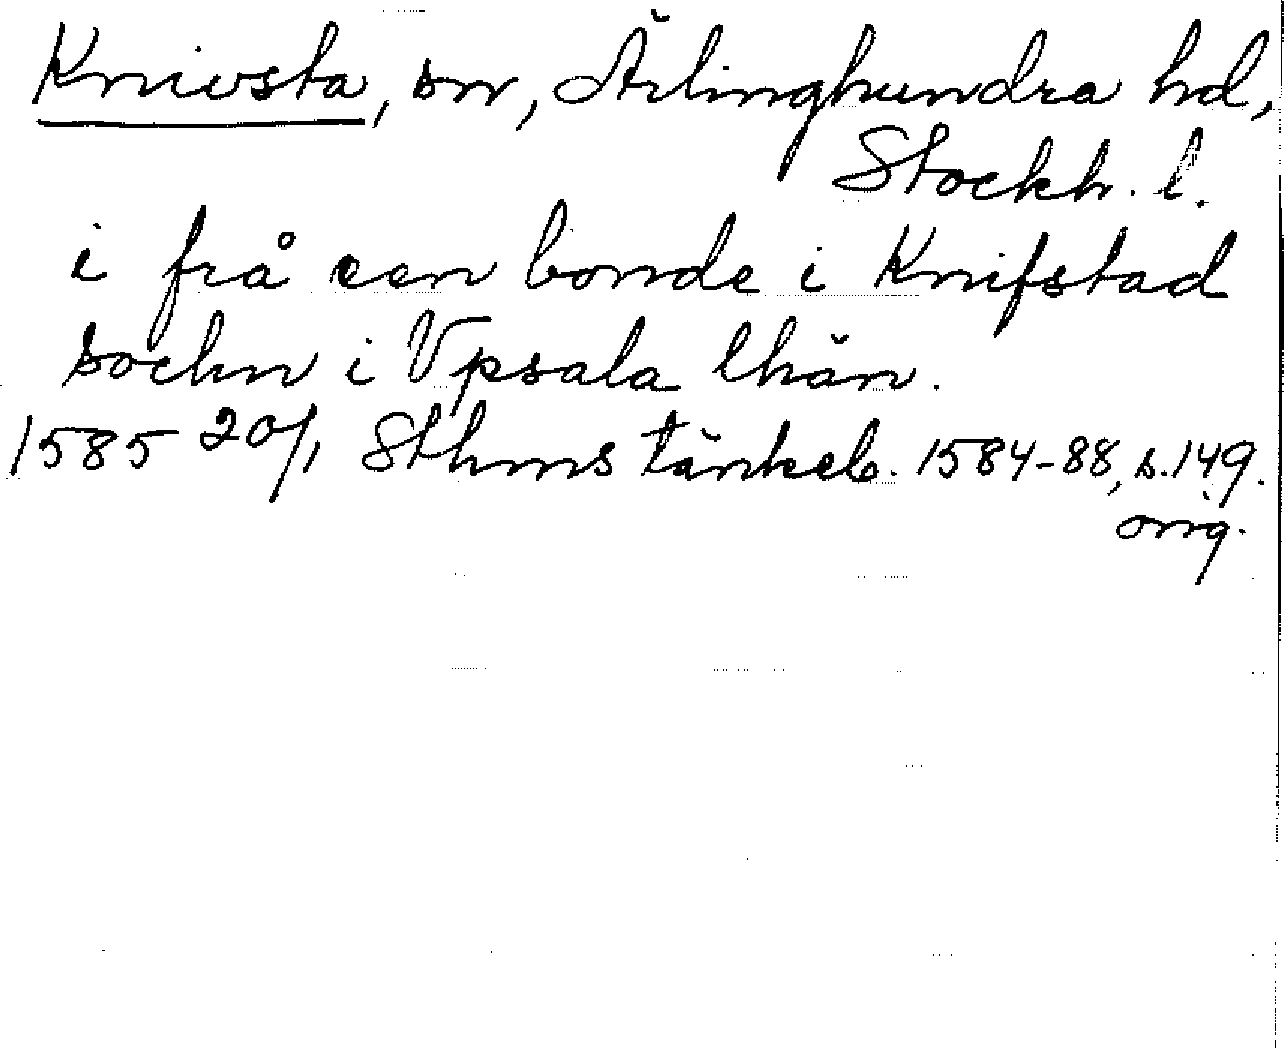 Knivsta, sn, Ärlinghundra hd,
Stockh. l.
i frå een bonde i Knifstad
sochn i Vpsala lhän.
1585 20/1 Sthms tänkeb. 1584-88, s. 149.
orig.